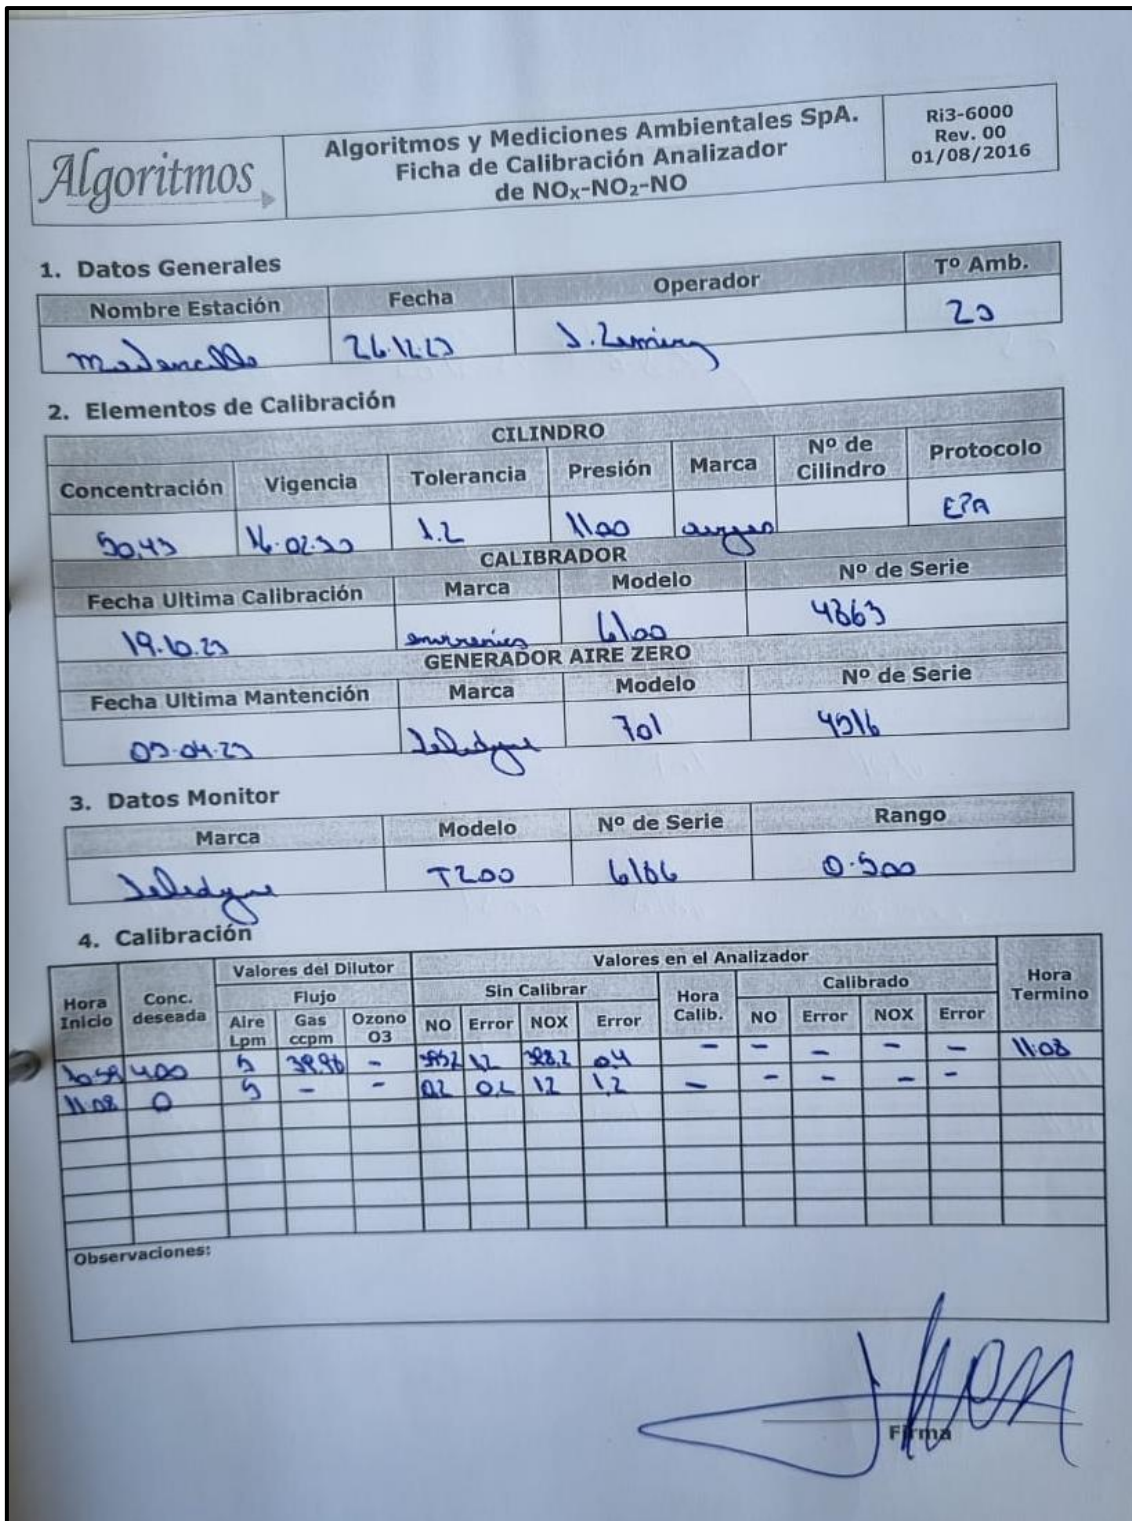 Algoritmos
Algoritmos y Mediciones Ambientales SpA.
Ficha de Calibración Analizador
de NOX-NO2-NO
Ri3-6000
Rev. 00
01/08/2016
1. Datos Generales
Nombre Estación Fecha Operador Tº Amb.
26.12.23 J.
2. Elementos de Calibración
CILINDRO
Concentración Vigencia Tolerancia Presión Marca Nº de Cilindro Protocolo
50.43 1.2 1100 EPA
CALIBRADOR
Fecha Ultima Calibración Marca Modelo Nº de Serie
19.10.23 6100 4863
GENERADOR AIRE ZERO
Fecha Ultima Mantención Marca Modelo Nº de Serie
Teledyne 701
3. Datos Monitor
Marca Modelo Nº de Serie Rango
Teledyne T200 0-500
4. Calibración
Hora Inicio Conc. deseada Valores del Dilutor Valores en el Analizador Hora Termino
Flujo Sin Calibrar Hora Calib. Calibrado
Aire Lpm Gas ccpm Ozono O3 NO Error NOX Error NO Error NOX Error
10:59 400 5 39.96 - 1.2 398.2 0.4 - - - - - 11:08
11:08 0 5 - - 0.2 0.2 1.2 1.2 - - - - -
Observaciones:
Firma